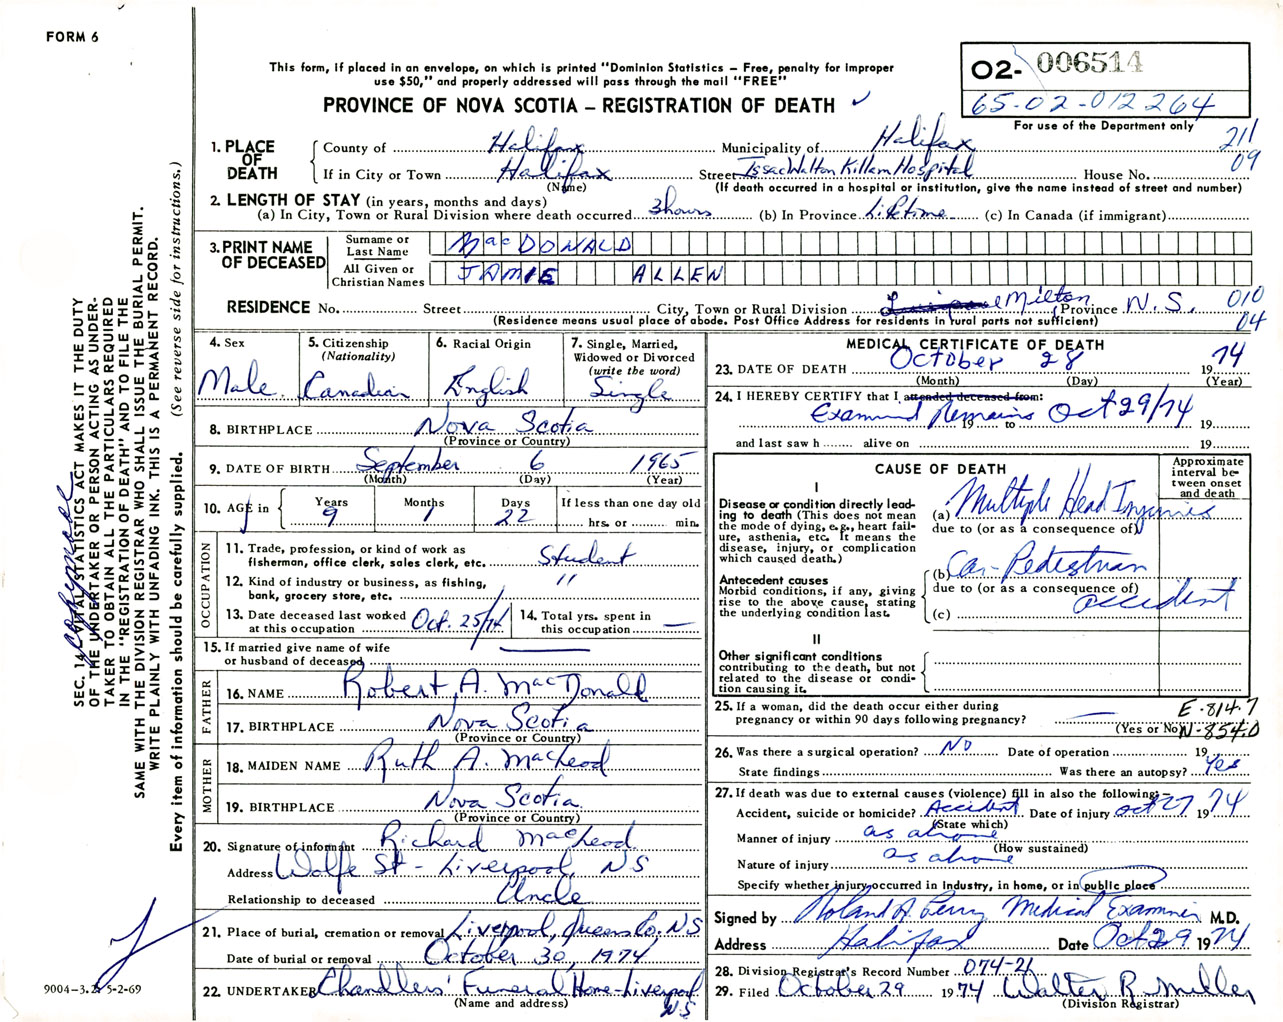 FORM 6
This form, if placed in an envelope, on which is printed "Dominion Statistics – Free, penalty for improper
use $50," and properly addressed will pass through the mail "FREE"
PROVINCE OF NOVA SCOTIA – REGISTRATION OF DEATH ✓
O2- 006514
65-02-012264
For use of the Department only
211
09
SEC. 14 VITAL STATISTICS ACT MAKES IT THE DUTY
OF THE UNDERTAKER OR PERSON ACTING AS UNDER-
TAKER TO OBTAIN ALL THE PARTICULARS REQUIRED
IN THE "REGISTRATION OF DEATH" AND TO FILE THE
SAME WITH THE DIVISION REGISTRAR WHO SHALL ISSUE THE BURIAL PERMIT.
WRITE PLAINLY WITH UNFADING INK. THIS IS A PERMANENT RECORD.
Every item of information should be carefully supplied. (See reverse side for instructions.)
1. PLACE OF DEATH
County of Halifax Municipality of Halifax
If in City or Town Halifax Street Issac Walton Killam Hospital House No.
(Name) (If death occurred in a hospital or institution, give the name instead of street and number)
2. LENGTH OF STAY (in years, months and days)
(a) In City, Town or Rural Division where death occurred 3 hours (b) In Province Lifetime (c) In Canada (if immigrant)
3. PRINT NAME OF DECEASED
Surname or Last Name MacDONALD
All Given or Christian Names JAMIE ALLEN
RESIDENCE No. Street City, Town or Rural Division Milton Province N.S. 010
04
(Residence means usual place of abode. Post Office Address for residents in rural parts not sufficient)
4. Sex Male
5. Citizenship (Nationality) Canadian
6. Racial Origin English
7. Single, Married, Widowed or Divorced (write the word) Single
8. BIRTHPLACE Nova Scotia
(Province or Country)
9. DATE OF BIRTH September 6 1965
(Month) (Day) (Year)
10. AGE in Years 9 Months 1 Days 22 If less than one day old
hrs. or min.
OCCUPATION
11. Trade, profession, or kind of work as
fisherman, office clerk, sales clerk, etc. Student
12. Kind of industry or business, as fishing,
bank, grocery store, etc. "
13. Date deceased last worked
at this occupation Oct. 25/74
14. Total yrs. spent in
this occupation —
15. If married give name of wife
or husband of deceased —
FATHER
16. NAME Robert A. MacDonald
17. BIRTHPLACE Nova Scotia
(Province or Country)
MOTHER
18. MAIDEN NAME Ruth A. MacLeod
19. BIRTHPLACE Nova Scotia
(Province or Country)
20. Signature of informant Richard MacLeod
Address Wolfe St - Liverpool, NS
Relationship to deceased Uncle
21. Place of burial, cremation or removal Liverpool, Queens Co. NS
Date of burial or removal October 30, 1974
22. UNDERTAKER Chandlers' Funeral Home-Liverpool
NS
(Name and address)
MEDICAL CERTIFICATE OF DEATH
23. DATE OF DEATH October 28 1974
(Month) (Day) (Year)
24. I HEREBY CERTIFY that I attended deceased from:
Examined Remains Oct 29/74
19 to 19
and last saw h alive on 19
CAUSE OF DEATH
Approximate interval between onset and death
I
Disease or condition directly lead-
ing to death (This does not mean
the mode of dying, e.g., heart fail-
ure, asthenia, etc. It means the
disease, injury, or complication
which caused death.)
(a) Multiple Head Injuries
due to (or as a consequence of)
Antecedent causes
Morbid conditions, if any, giving
rise to the above cause, stating
the underlying condition last.
(b) Car-Pedestrian
due to (or as a consequence of)
accident
(c)
II
Other significant conditions
contributing to the death, but not
related to the disease or condi-
tion causing it.
25. If a woman, did the death occur either during
pregnancy or within 90 days following pregnancy? —
(Yes or No)
E-814.7
N-854.0
26. Was there a surgical operation? No Date of operation 19
State findings Was there an autopsy? Yes
27. If death was due to external causes (violence) fill in also the following:—
Accident, suicide or homicide? Accident Date of injury Oct 27 1974
(State which)
Manner of injury as above
(How sustained)
Nature of injury as above
Specify whether injury occurred in industry, in home, or in public place
Signed by Roland A. Perry Medical Examiner M.D.
Address Halifax Date Oct 29 1974
28. Division Registrar's Record Number 074-21
29. Filed October 29 1974 Walter R. Miller
(Division Registrar)
9004-3.2 5-2-69